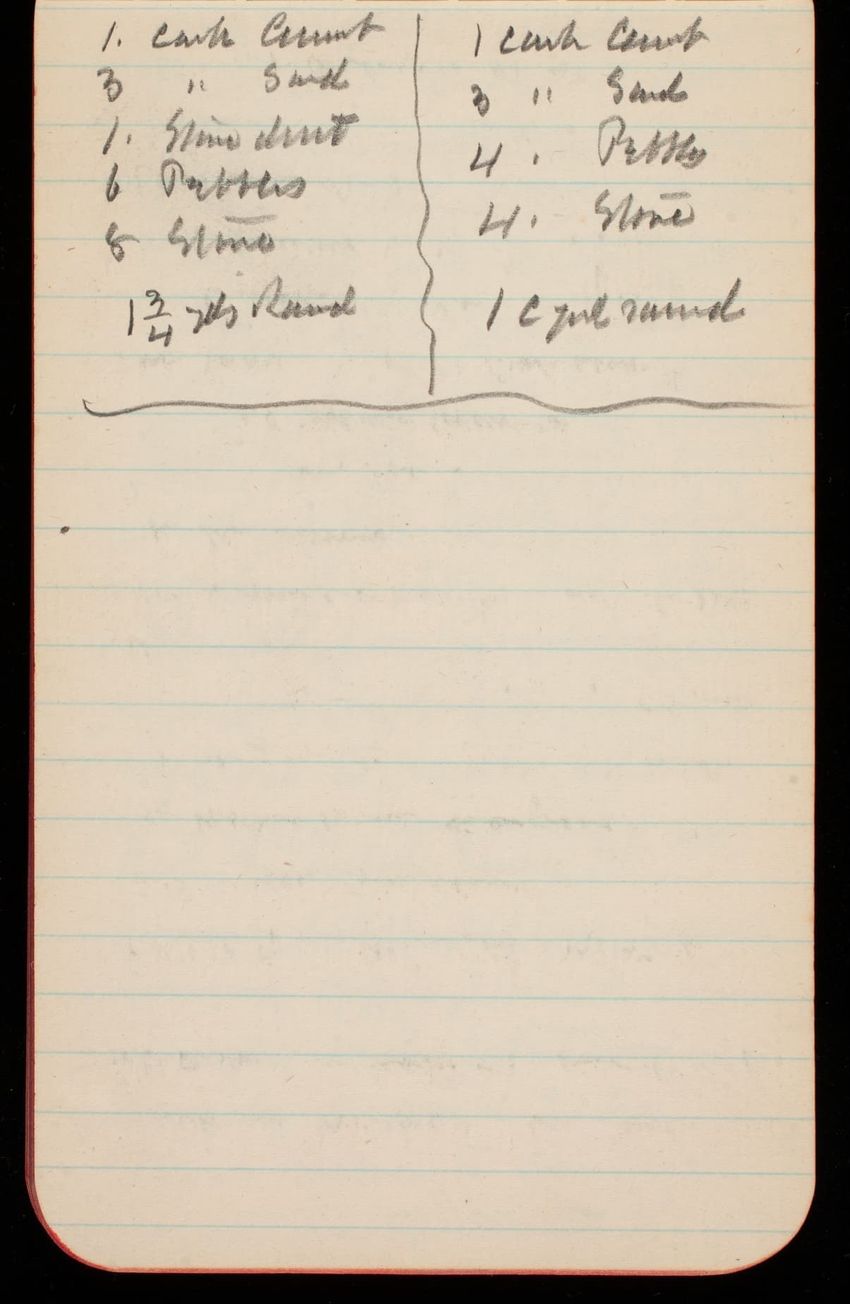 1. cask Cement
3 " Sand
1. Stone dust
6 Pebbles
8 Stone
1 3/4 yds Ramd
1 cask Cement
3 " Sand
4 " Pebbles
4 " Stone
1 c yd ramd